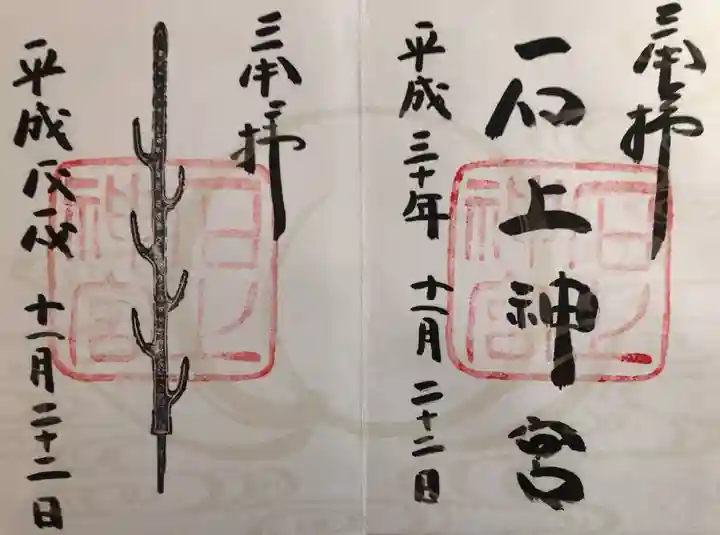 奉拝
石上神宮
平成三十年 十一月 二十二日
石上神宮
奉拝
平成戊戌 十一月 二十二日
石上神宮